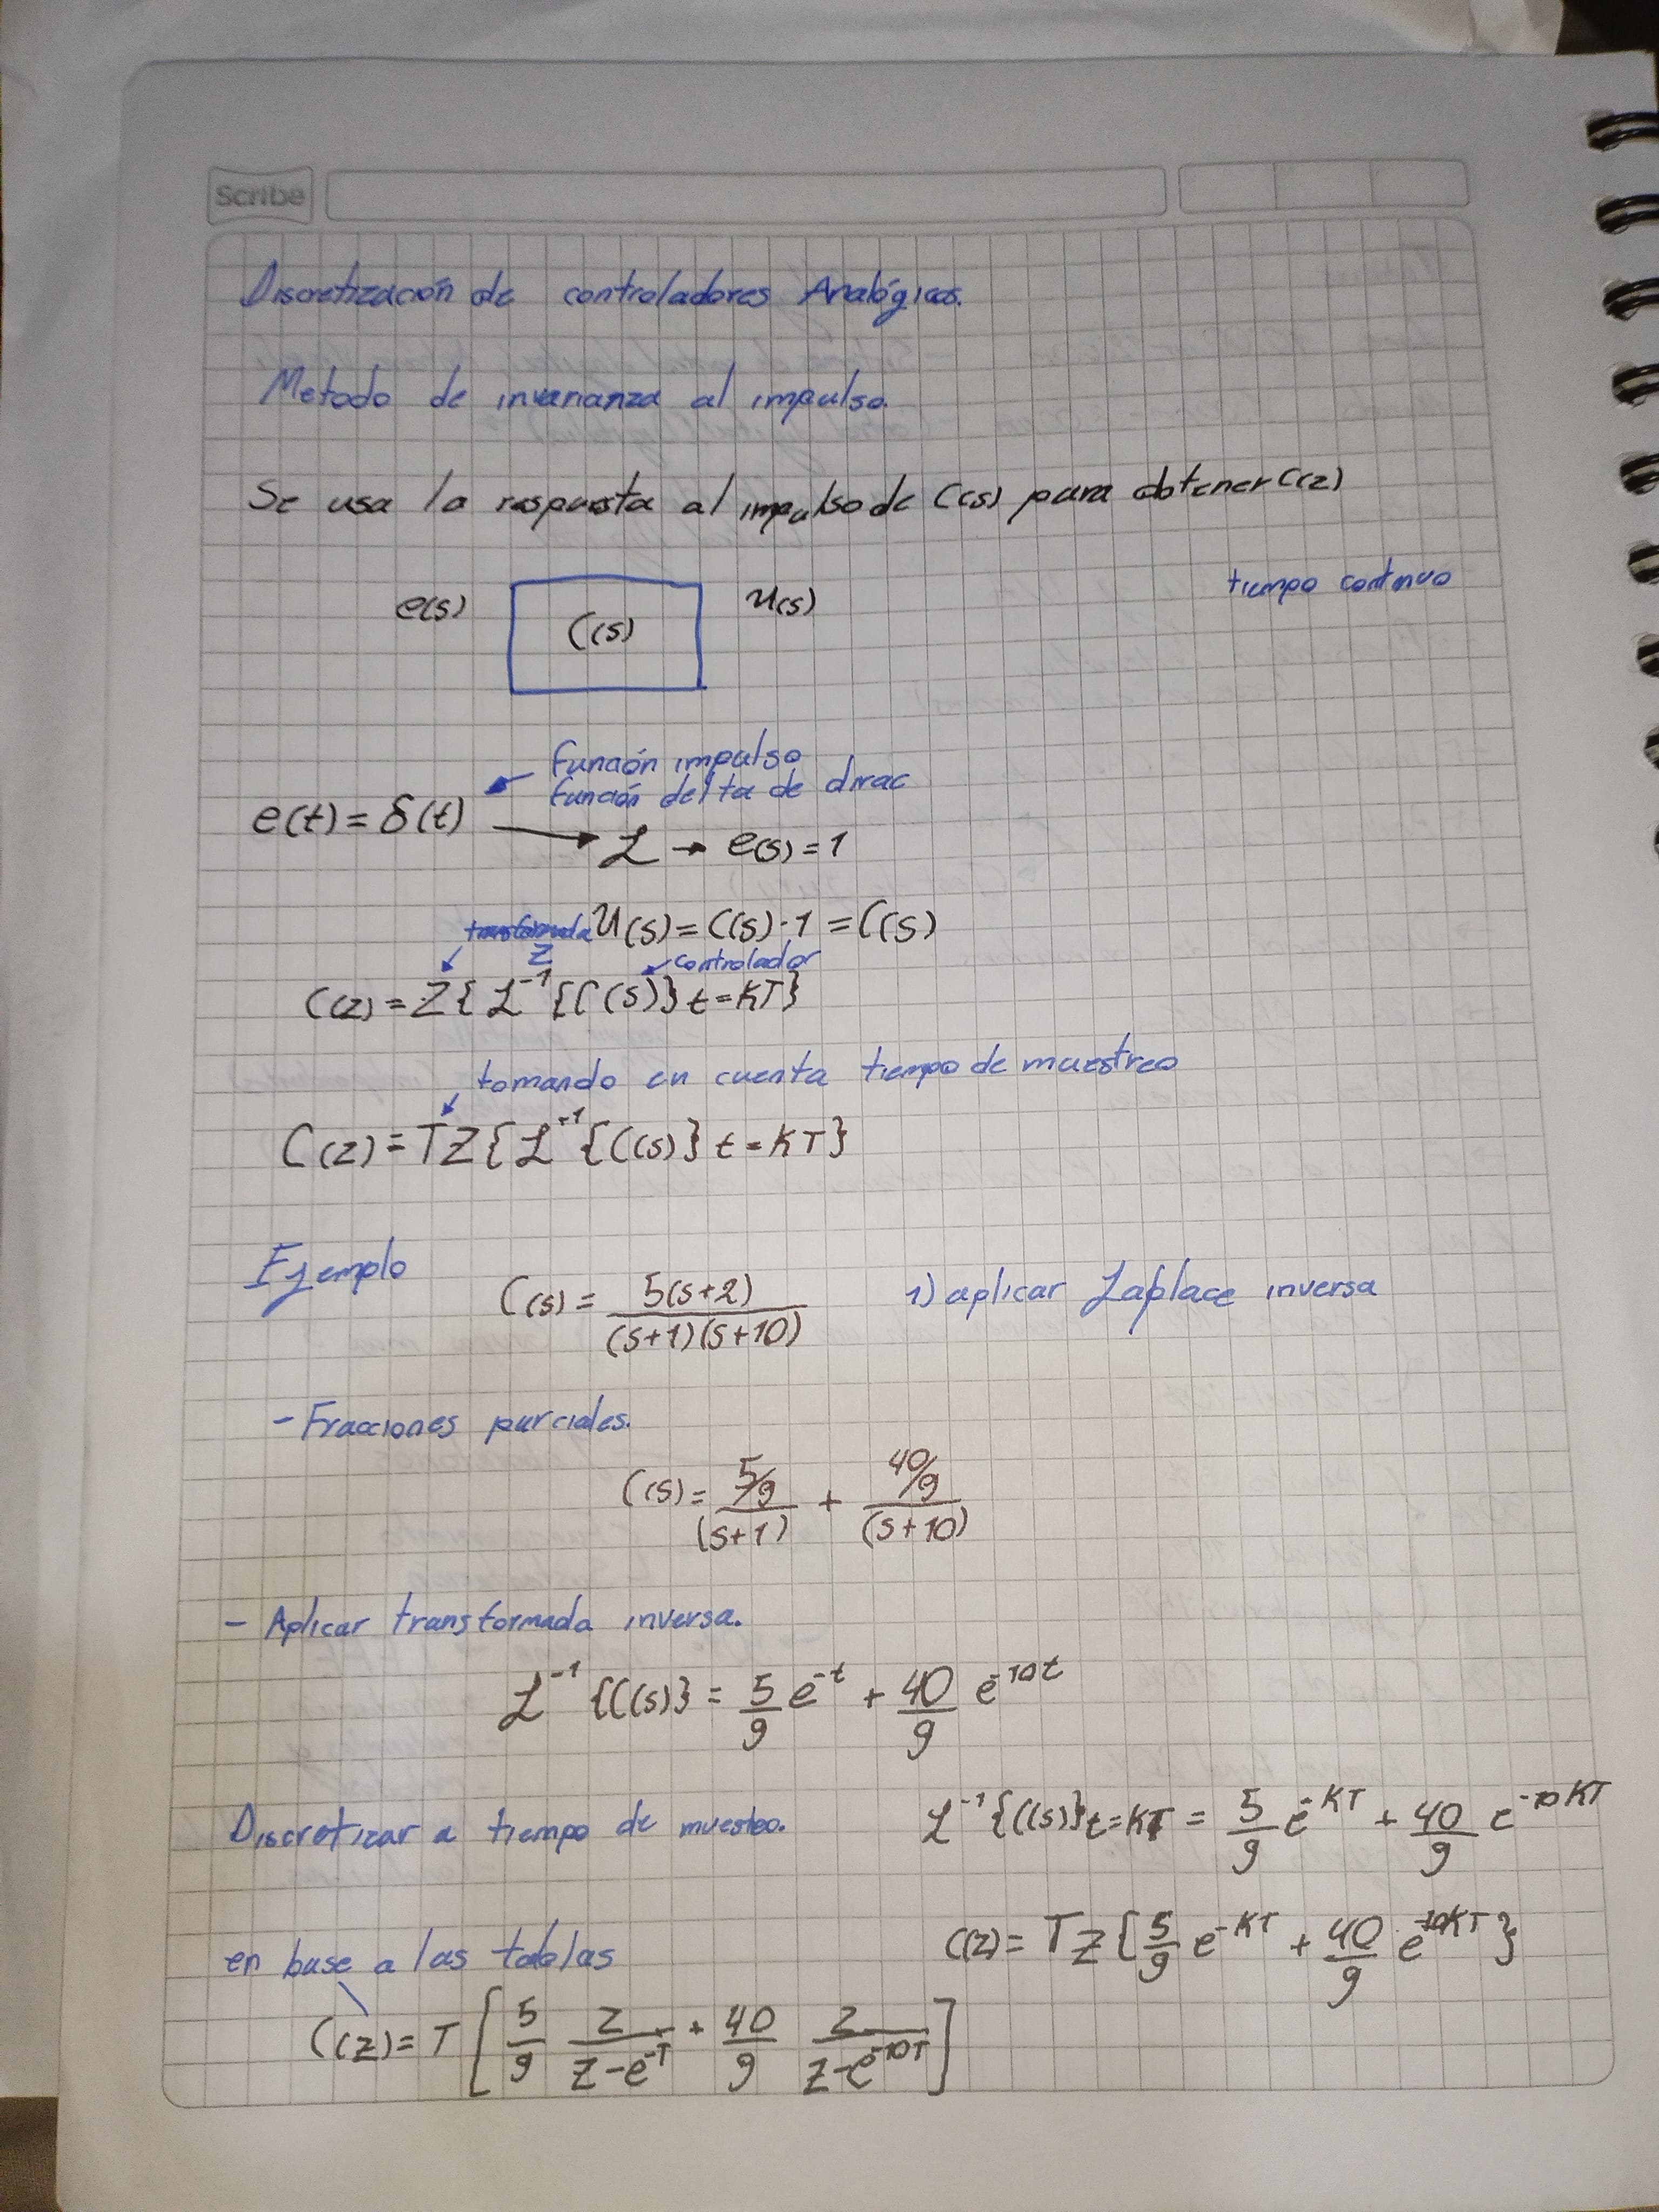 Scribe
Discretización de controladores Analógicos.
Metodo de invarianza al impulso.
Se usa la respuesta al impulso de C(s) para obtener C(z)
tiempo continuo
e(s) C(s) u(s)
función impulso
función delta de dirac
e(t) = δ(t)
ℒ → e(s) = 1
transformada U(s) = C(s)·1 = C(s)
Z controlador
C(z) = Z{ℒ⁻¹{C(s)} t=KT}
tomando en cuenta tiempo de muestreo
C(z) = TZ{ℒ⁻¹{C(s)} t=KT}
Ejemplo C(s) = 5(s+2) / (s+1)(s+10) 1) aplicar Laplace inversa
- Fracciones parciales.
C(s) = 5/9 / (s+1) + 40/9 / (s+10)
- Aplicar transformada inversa.
ℒ⁻¹{C(s)} = 5/9 e^-t + 40/9 e^-10t
Discretizar a tiempo de muesteo. ℒ⁻¹{C(s)} t=KT = 5/9 e^-KT + 40/9 e^-10KT
C(z) = TZ{5/9 e^-KT + 40/9 e^-10KT}
en base a las tablas
C(z) = T[5/9 z/(z-e^-T) + 40/9 z/(z-e^-10T)]